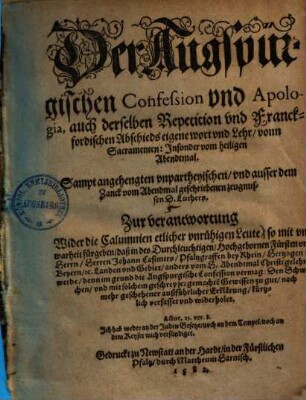 Der Augspur-
gischen Confession vnd Apolo-
gia, auch derselben Repetition vnd Franck-
fordischen Abschieds eigene wort vnd Lehr, vonn
Sacramenten: Insonder vom heiligen
Abendtmal.
Sampt angehengten vnpartheyischen, vnd ausser dem
Zanck vom Abendmal geschriebenen zeugnuß-
sen D. Luthers,
Zur verantwortung
Wider die Calumnien etlicher vnrühigen Leute, so mit vn
warheit fürgeben, daß in des Durchleuchtigen, Hochgebornen Fürsten vn
Herrn, Herren Johann Casimirs, Pfaltzgraffen bey Rhein, Hertzogen
Beyern, ec. Landen vnd Gebiet, anders vom H. Abendmal Christi gelehrt
werde, denn im grund die Augspurgische Confession vermag: Den Schwa
chen, vnd mit solchem geschrey gemachet Gewissen zu gut, nach
mehr geschehener außführlicher Erklärung, kürtz-
lich verfasset vnd widerholet.
Actor. 25. ver. 8.
Ich hab weder an der Jüden Gesetz, noch an dem Tempel, noch an
dem Keyser mich versündiget.
Gedruckt zu Newstatt an der Hardt, in der Fürstlichen
Pfaltz, durch Mattheum Harnisch.
1582.